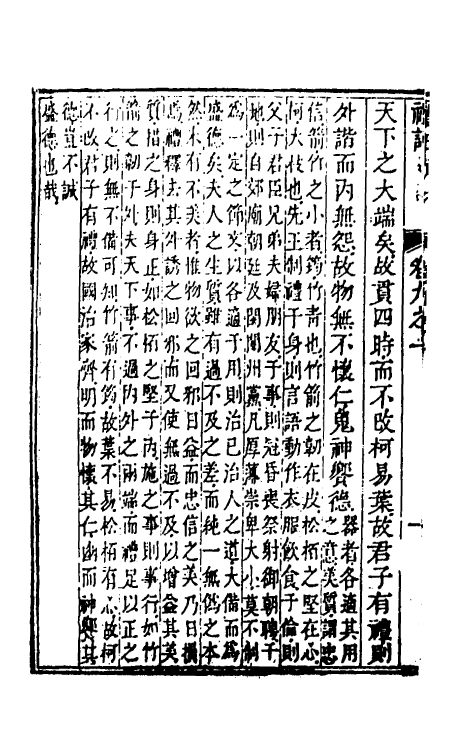 天下之大端矣故貫四時而不改柯易葉故君子有禮則
外諧而內無怨故物無不懷仁鬼神饗德
器者各適其用
之意美質謂忠
信箭竹之小者筠竹青也竹箭之韌在皮松栢之堅在心
何大伎也先王制禮于身則言語動作衣服飲食于倫則
父子君臣兄弟夫婦朋友于事則冠昏喪祭射御朝聘于
地則自郊廟朝廷及閭閻州黨凡厚薄崇卑大小莫不制
為一定之節文以各適于用則治已治人之道大備而為
盛德矣夫人之生質雖有過不及之差而純一無偽之本
然未有不美者惟物欲之回邪日益而忠信之美乃日損
焉禮釋去其外誘之回邪而又使無過不及以增益其美
質措之身則身正如松栢之堅于內施之事則事行如竹
箭之韌于外夫天下事不過內外之兩端而禮足以正之
行之則無不備可知竹箭有筠故葉不易松栢有心故柯
不改君子有禮故國治家齊明而物懷其仁幽而神饗其
德豈不誠
盛德也哉